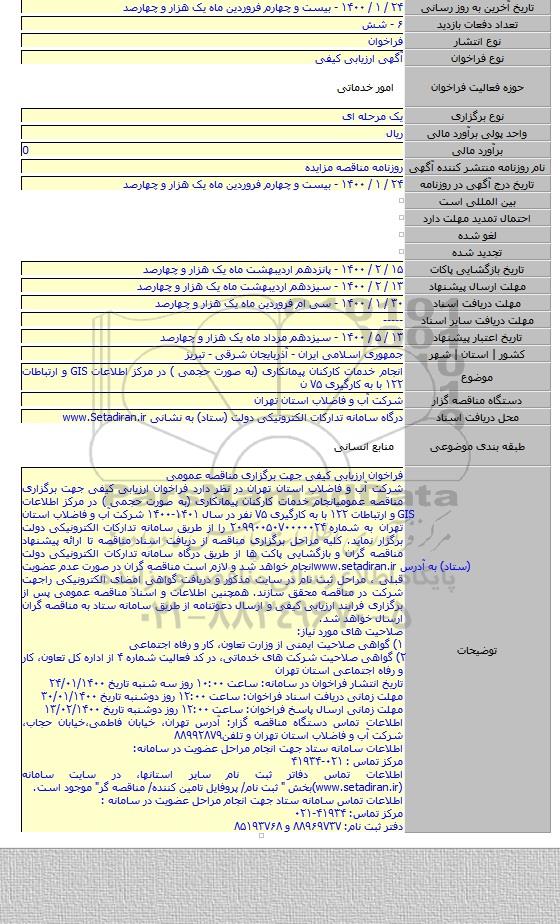 تاریخ آخرین به روز رسانی ۲۴ / ۱ / ۱۴۰۰ - بیست و چهارم فروردین ماه یک هزار و چهارصد
تعداد دفعات بازدید ۶ - شش
نوع انتشار فراخوان
نوع فراخوان آگهی ارزیابی کیفی
حوزه فعالیت فراخوان امور خدماتی
نوع برگزاری یک مرحله ای
واحد پولی برآورد مالی ریال
برآورد مالی 0
نام روزنامه منتشر کننده آگهی روزنامه مناقصه مزایده
تاریخ درج آگهی در روزنامه ۲۴ / ۱ / ۱۴۰۰ - بیست و چهارم فروردین ماه یک هزار و چهارصد
بین المللی است
احتمال تمدید مهلت دارد
لغو شده
تجدید شده
تاریخ بازگشایی پاکات ۱۵ / ۲ / ۱۴۰۰ - پانزدهم اردیبهشت ماه یک هزار و چهارصد
مهلت ارسال پیشنهاد ۱۳ / ۲ / ۱۴۰۰ - سیزدهم اردیبهشت ماه یک هزار و چهارصد
مهلت دریافت اسناد ۳۰ / ۱ / ۱۴۰۰ - سی ام فروردین ماه یک هزار و چهارصد
مهلت دریافت سایر اسناد -----
تاریخ اعتبار پیشنهاد ۱۳ / ۵ / ۱۴۰۰ - سیزدهم مرداد ماه یک هزار و چهارصد
کشور | استان | شهر جمهوری اسلامی ایران - آذربایجان شرقی - تبریز
موضوع انجام خدمات کارکنان پیمانکاری (به صورت حجمی ) در مرکز اطلاعات GIS و ارتباطات
۱۲۲ با به کارگیری ۷۵ ن
دستگاه مناقصه گزار شرکت آب و فاضلاب استان تهران
محل دریافت اسناد درگاه سامانه تدارکات الکترونیکی دولت (ستاد) به نشانی www.Setadiran.ir
طبقه بندی موضوعی منابع انسانی
توضیحات
فراخوان ارزیابی کیفی جهت برگزاری مناقصه عمومی
شرکت آب و فاضلاب استان تهران در نظر دارد فراخوان ارزیابی کیفی جهت برگزاری
مناقصه عمومیانجام خدمات کارکنان پیمانکاری (به صورت حجمی ) در مرکز اطلاعات
GIS و ارتباطات ۱۲۲ با به کارگیری ۷۵ نفر در سال ۱۴۰۱-۱۴۰۰ شرکت آب و فاضلاب استان
تهران به شماره ۲۰۹۹۰۰۵۰۷۰۰۰۰۰۲۴ را از طریق سامانه تدارکات الکترونیکی دولت
برگزار نماید. کلیه مراحل برگزاری مناقصه از دریافت اسناد مناقصه تا ارائه پیشنهاد
مناقصه گران و بازگشایی پاکت ها از طریق درگاه سامانه تدارکات الکترونیکی دولت
(ستاد) به آدرس www.setadiran.irانجام خواهد شد و لازم است مناقصه گران در صورت عدم عضویت
قبلی ، مراحل ثبت نام در سایت مذکور و دریافت گواهی امضای الکترونیکی راجهت
شرکت در مناقصه محقق سازند. همچنین اطلاعات و اسناد مناقصه عمومی پس از
برگزاری فرایند ارزیابی کیفی و ارسال دعوتنامه از طریق سامانه ستاد به مناقصه گران
ارسال خواهد شد.
صلاحیت های مورد نیاز:
۱) گواهی صلاحیت ایمنی از وزارت تعاون، کار و رفاه اجتماعی
۲) گواهی صلاحیت شرکت های خدماتی، در کد فعالیت شماره ۴ از اداره کل تعاون، کار
و رفاه اجتماعی استان تهران
تاریخ انتشار فراخوان در سامانه: ساعت ۱۰:۰۰ روز سه شنبه تاریخ ۲۴/۰۱/۱۴۰۰
مهلت زمانی دریافت اسناد فراخوان: ساعت ۱۲:۰۰ روز دوشنبه تاریخ ۳۰/۰۱/۱۴۰۰
مهلت زمانی ارسال پاسخ فراخوان: ساعت ۱۲:۰۰ روز دوشنبه تاریخ ۱۳/۰۲/۱۴۰۰
اطلاعات تماس دستگاه مناقصه گزار: آدرس تهران، خیابان فاطمی،خیابان حجاب،
شرکت آب و فاضلاب استان تهران و تلفن۸۸۹۹۲۸۷۹
اطلاعات سامانه ستاد جهت انجام مراحل عضویت در سامانه:
مرکز تماس : ۰۲۱-۴۱۹۳۴
اطلاعات تماس دفاتر ثبت نام سایر استانها، در سایت سامانه
(www.setadiran.ir)بخش " ثبت نام/ پروفایل تامین کننده/ مناقصه گر" موجود است.
اطلاعات تماس سامانه ستاد جهت انجام مراحل عضویت در سامانه :
مرکز تماس: ۴۱۹۳۴-۰۲۱
دفتر ثبت نام: ۸۸۹۶۹۷۳۷ و ۸۵۱۹۳۷۶۸